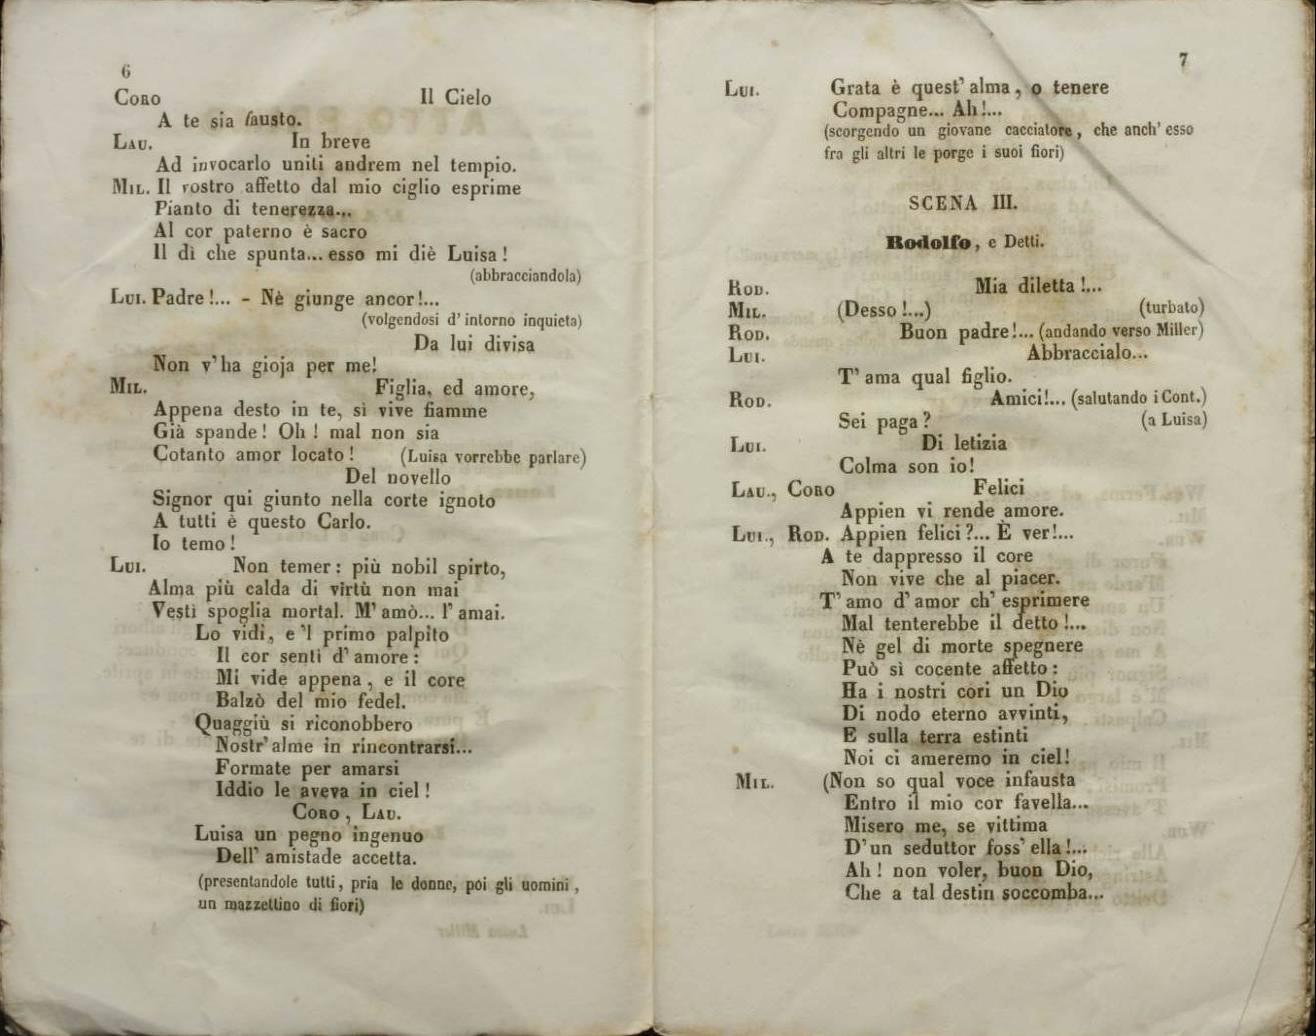 6
CORO Il Cielo
A te sia fausto.
LAU. In breve
Ad invocarlo uniti andrem nel tempio.
MIL. Il vostro affetto dal mio ciglio esprime
Pianto di tenerezza...
Al cor paterno è sacro
Il dì che spunta... esso mi diè Luisa!
(abbracciandola)
LUI. Padre!... - Nè giunge ancor!...
(volgendosi d'intorno inquieta)
Da lui divisa
Non v'ha gioja per me!
MIL. Figlia, ed amore,
Appena desto in te, sì vive fiamme
Già spande! Oh! mal non sia
Cotanto amor locato! (Luisa vorrebbe parlare)
Del novello
Signor qui giunto nella corte ignoto
A tutti è questo Carlo.
Io temo!
LUI. Non temer: più nobil spirto,
Alma più calda di virtù non mai
Vestì spoglia mortal. M'amò... l'amai.
Lo vidi, e 'l primo palpito
Il cor sentì d'amore:
Mi vide appena, e il core
Balzò del mio fedel.
Quaggiù si riconobbero
Nostr'alme in rincontrarsi...
Formate per amarsi
Iddio le aveva in ciel!
CORO, LAU.
Luisa un pegno ingenuo
Dell'amistade accetta.
(presentandole tutti, pria le donne, poi gli uomini,
un mazzettino di fiori)
7
LUI. Grata è quest'alma, o tenere
Compagne... Ah!...
(scorgendo un giovane cacciatore, che anch'esso
fra gli altri le porge i suoi fiori)
SCENA III.
Rodolfo, e Detti.
ROD. Mia diletta!...
MIL. (Desso!...) (turbato)
ROD. Buon padre!... (andando verso Miller)
LUI. Abbraccialo...
T'ama qual figlio.
ROD. Amici!... (salutando i Cont.)
Sei paga? (a Luisa)
LUI. Di letizia
Colma son io!
LAU., CORO Felici
Appien vi rende amore.
LUI., ROD. Appien felici?... È ver!...
A te dappresso il core
Non vive che al piacer.
T'amo d'amor ch'esprimere
Mal tenterebbe il detto!...
Nè gel di morte spegnere
Può sì cocente affetto:
Ha i nostri cori un Dio
Di nodo eterno avvinti,
E sulla terra estinti
Noi ci ameremo in ciel!
MIL. (Non so qual voce infausta
Entro il mio cor favella...
Misero me, se vittima
D'un seduttor foss'ella!...
Ah! non voler, buon Dio,
Che a tal destin soccomba...